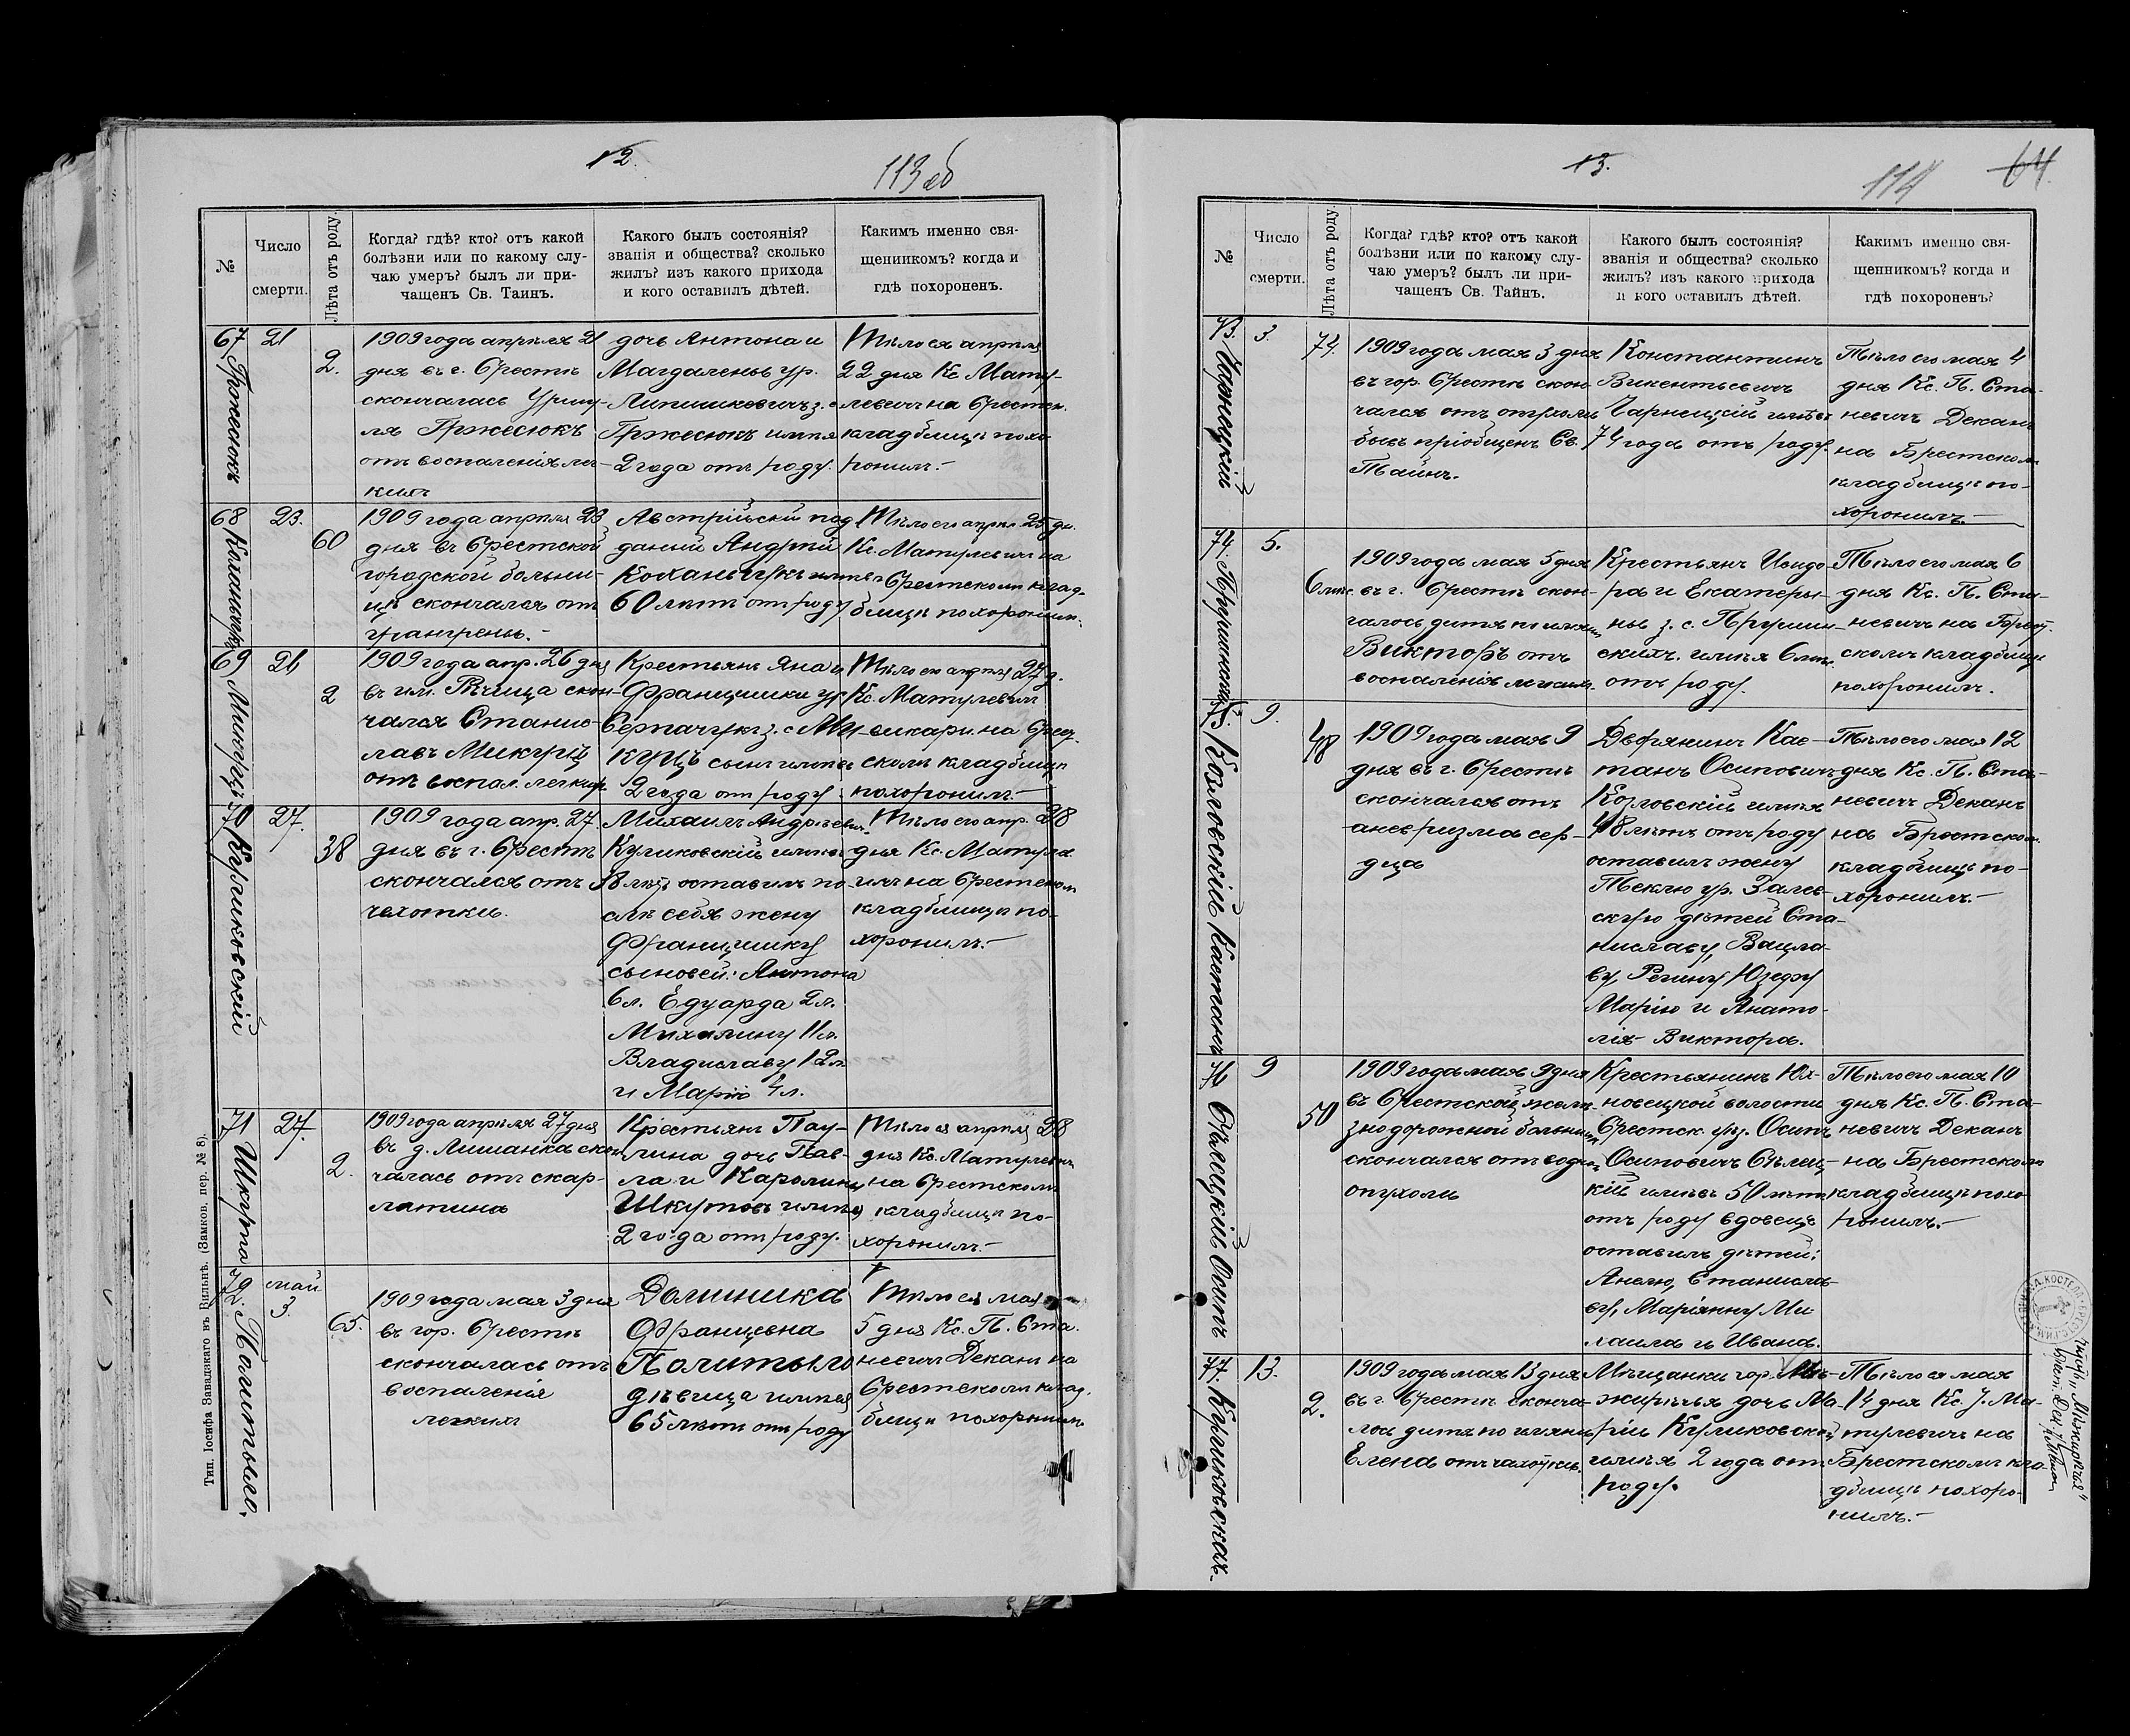 12.
113 об
№
Число
смерти.
Лѣта отъ роду.
Когда? гдѣ? кто? отъ какой
болѣзни или по какому слу-
чаю умеръ? былъ ли при-
чащенъ Св. Таинъ.
Какого былъ состоянія?
званія и общества? сколько
жилъ? изъ какого прихода
и кого оставилъ дѣтей.
Какимъ именно свя-
щенникомъ? когда и
гдѣ похороненъ.
67
21
2.
1909 года апрѣля 21
дня въ г. Брестѣ
скончалась Уршу-
ля Гржесюкъ
отъ воспаленія лег-
кихъ
дочь Антона и
Магдалены ур.
Липишкевичъ з. с.
Гржесюкъ имѣя
2 года отъ роду.
Тѣло ея апрѣля
22 дня Кс. Мату-
левичъ на Брестск.
кладбищѣ похо-
ронилъ.-
68
Коханьчукъ
23.
60
1909 года апрѣля 23
дня въ Брестской
городской больни-
цѣ скончался отъ
гангрены.-
Австрійскій под-
данный Андрей
Коханьчукъ имѣя
60 лѣтъ отъ роду
Тѣло его апрѣл. 25 дн.
Кс. Матулевичъ на
Брестскомъ клад-
бищѣ похоронилъ.
69
Микуцъ
26
2
1909 года апр. 26 дня
въ им. Рѣчица скон-
чался Станис-
лавъ Микуцъ
отъ воспал. легкихъ
Крестьянъ Яна и
Францишки ур.
з. с. Ми-
куцъ сынъ имѣя
2 года отъ роду.
Тѣло его апрѣля 27 д.
Кс. Матулевичъ
викарій на Брест-
скомъ кладбищѣ
похоронилъ.-
70
Куликовскій
27.
38
1909 года апр. 27
дня въ г. Брестѣ
скончался отъ
чахотки.
Михаилъ Андреевич.
Куликовскій имѣя
38 лѣтъ оставилъ по-
слѣ себя жену
Францишку
сыновей: Антона
6 л. Едуарда 2 л.
Михалину 11 л.
Владиславу 12 л.
и Марію 4 л.
Тѣло его апр. 28
дня Кс. Матуле-
вичъ на Брестскомъ
кладбищѣ по-
хоронилъ.-
71
Шкутова
27.
2.
1909 года апрѣля 27 дня
въ д. Лишанка скон-
чалась отъ скар-
латина
Крестьянъ Пау-
лина дочь Пав-
ла и Каролины
Шкутовъ имѣя
2 года отъ роду.
Тѣло ея апрѣля 28
дня Кс. Матулевичъ
на Брестскомъ
кладбищѣ по-
хоронилъ.-
72.
Политыло.
май
3.
65.
1909 года мая 3 дня
въ гор. Брестѣ
скончалась отъ
воспаленія
легкихъ
Доминика
Францевна
Политыло
дѣвица имѣя
65 лѣтъ отъ роду
Тѣло ея мая
5 дня Кс. П. Ста-
невичъ Деканъ на
Брестскомъ клад-
бищѣ похоронилъ
Тип. Іосифа Завадзкаго въ Вильнѣ. (Замков. пер. № 8).
13.
114
64.
№
Число
смерти.
Лѣта отъ роду.
Когда? гдѣ? кто? отъ какой
болѣзни или по какому слу-
чаю умеръ? былъ ли при-
чащенъ Св. Тайнъ.
Какого былъ состоянія?
званія и общества? сколько
жилъ? изъ какого прихода
и кого оставилъ дѣтей.
Какимъ именно свя-
щенникомъ? когда и
гдѣ похороненъ?
73.
Чарнецкій
3.
74.
1909 года мая 3 дня
въ гор. Брестѣ скон-
чался отъ опухоли
бывъ пріобщенъ Св.
Тайнъ.
Константинъ
Викентьевичъ
Чарнецкій имѣвъ
74 года отъ роду.
Тѣло его мая 4
дня Кс. П. Ста-
невичъ Деканъ
на Брестскомъ
кладбищѣ по-
хоронилъ.-
74.
5.
6 мѣс.
1909 года мая 5 дня
въ г. Брестѣ скон-
чалось дитя по имени
Викторъ отъ
воспаленія легкихъ.
Крестьянъ Исидо-
ра и Екатери-
ны з. с. Прушин-
скихъ. имѣя 6 мѣс.
отъ роду.
Тѣло его мая 6
дня Кс. П. Ста-
невичъ на Брест-
скомъ кладбищѣ
похоронилъ.
75.
Козловскій Каетанъ
9.
48
1909 года мая 9
дня въ г. Брестѣ
скончался отъ
аневризма сер-
дца
Дворянинъ Кае-
танъ Осиповичъ
Козловскій имѣя
48 лѣтъ отъ роду
оставилъ жену
Теклю ур. Залев-
скую дѣтей Ста-
ниславу, Вацла-
ву, Регину Юзефу
Марію и Анато-
лія-Виктора.
Тѣло его мая 12
дня Кс. П. Ста-
невичъ Деканъ
на Брестском.
кладбищѣ по-
хоронилъ.-
76
Бѣлецкій Осипъ
9
50
1909 года мая 9 дня
въ Брестской желѣ-
знодорожной больницѣ
скончался отъ водяной
опухоли
Крестьянинъ Юх-
новецкой волости
Брестск. уѣз. Осипъ
Осиповичъ Бѣлец-
кій имѣвъ 50 лѣтъ
отъ роду вдовецъ
оставилъ дѣтей:
Анелю, Станисла-
ву, Маріянну Ми-
хаила и Ивана.
Тѣло его мая 10
дня Кс. П. Ста-
невичъ Деканъ
на Брестскомъ
кладбищѣ похо-
ронилъ.-
77.
Куликовская.
13.
2.
1909 года мая 13 дня
въ г. Брестѣ сконча-
лось дитя по имени
Елена отъ чахотки.
Мѣщанки гор. Мѣ-
жирѣчья дочь Ма-
ріи Куликовской
имѣя 2 года отъ
роду.
Тѣло ея мая
14 дня Кс. І. Ма-
тулевичъ на
Брестскомъ кла-
дбищѣ похоро-
нилъ.-